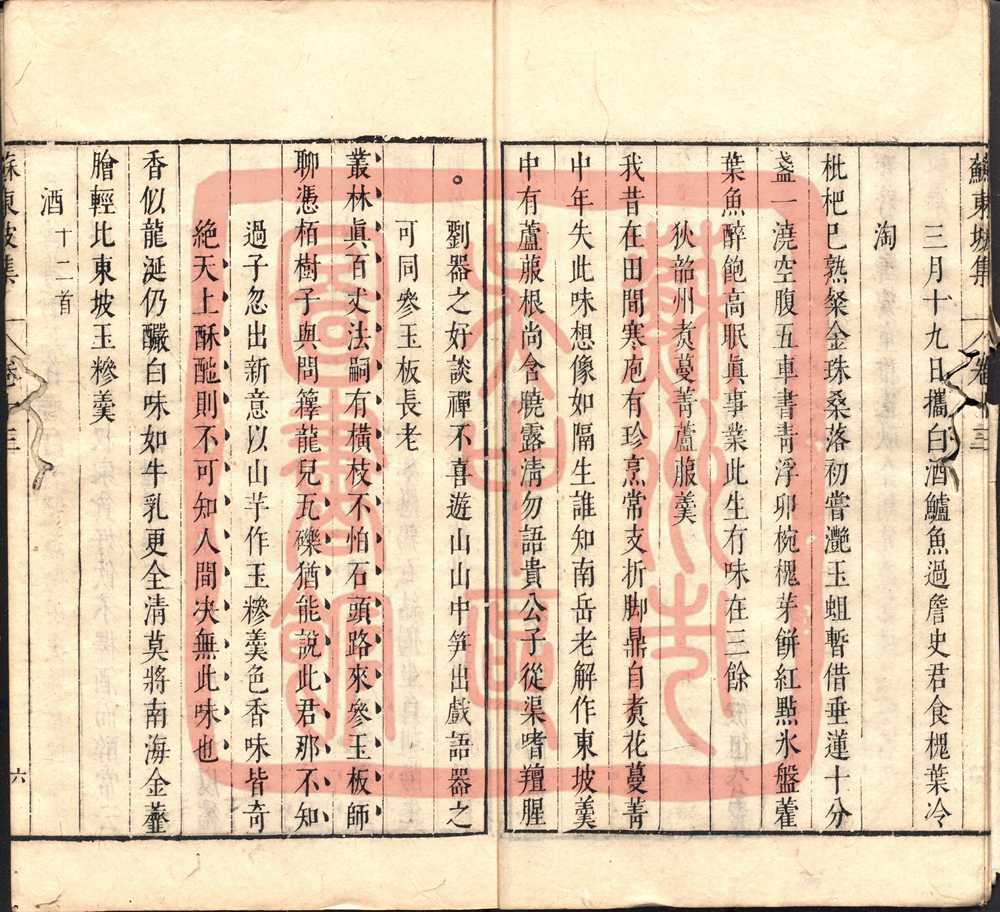 蘇東坡集 卷 三
三月十九日攜白酒鱸魚過詹史君食槐葉冷
淘
枇杷已熟粲金珠桑落初嘗灔玉蛆暫借垂蓮十分
盞一澆空腹五車書青浮卯椀槐芽餅紅點氷盤藿
葉魚醉飽高眠眞事業此生有味在三餘
狄韶州煑蔓菁蘆菔羹
我昔在田間寒庖有珍烹常支折脚鼎自煑花蔓菁
中年失此味想像如隔生誰知南岳老解作東坡羹
中有蘆菔根尚含曉露清勿語貴公子從渠嗜羶腥
劉器之好談禪不喜遊山山中笋出戲語器之
可同參玉板長老
叢林眞百丈法嗣有橫枝不怕石頭路來參玉板師
聊憑栢樹子與問籜龍兒瓦礫猶能說此君那不知
過子忽出新意以山芋作玉糝羹色香味皆奇
絶天上酥酏則不可知人間决無此味也
香似龍涎仍釅白味如牛乳更全清莫將南海金虀
膾輕比東坡玉糝羹
酒 十二首
蘇東坡集 卷 三 六
圖書館